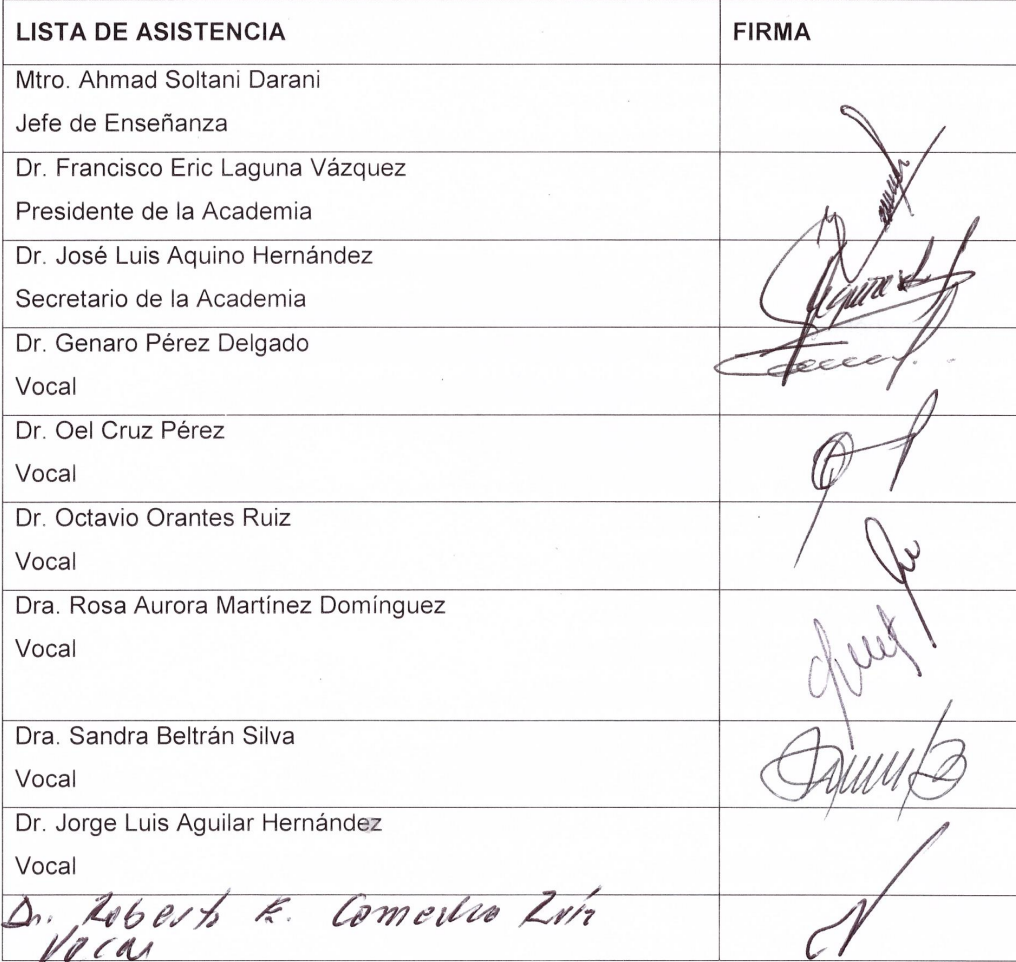 LISTA DE ASISTENCIA FIRMA
Mtro. Ahmad Soltani Darani
Jefe de Enseñanza
Dr. Francisco Eric Laguna Vázquez
Presidente de la Academia
Dr. José Luis Aquino Hernández
Secretario de la Academia
Dr. Genaro Pérez Delgado
Vocal
Dr. Oel Cruz Pérez
Vocal
Dr. Octavio Orantes Ruiz
Vocal
Dra. Rosa Aurora Martínez Domínguez
Vocal
Dra. Sandra Beltrán Silva
Vocal
Dr. Jorge Luis Aguilar Hernández
Vocal
Dr. Roberto
Vocal